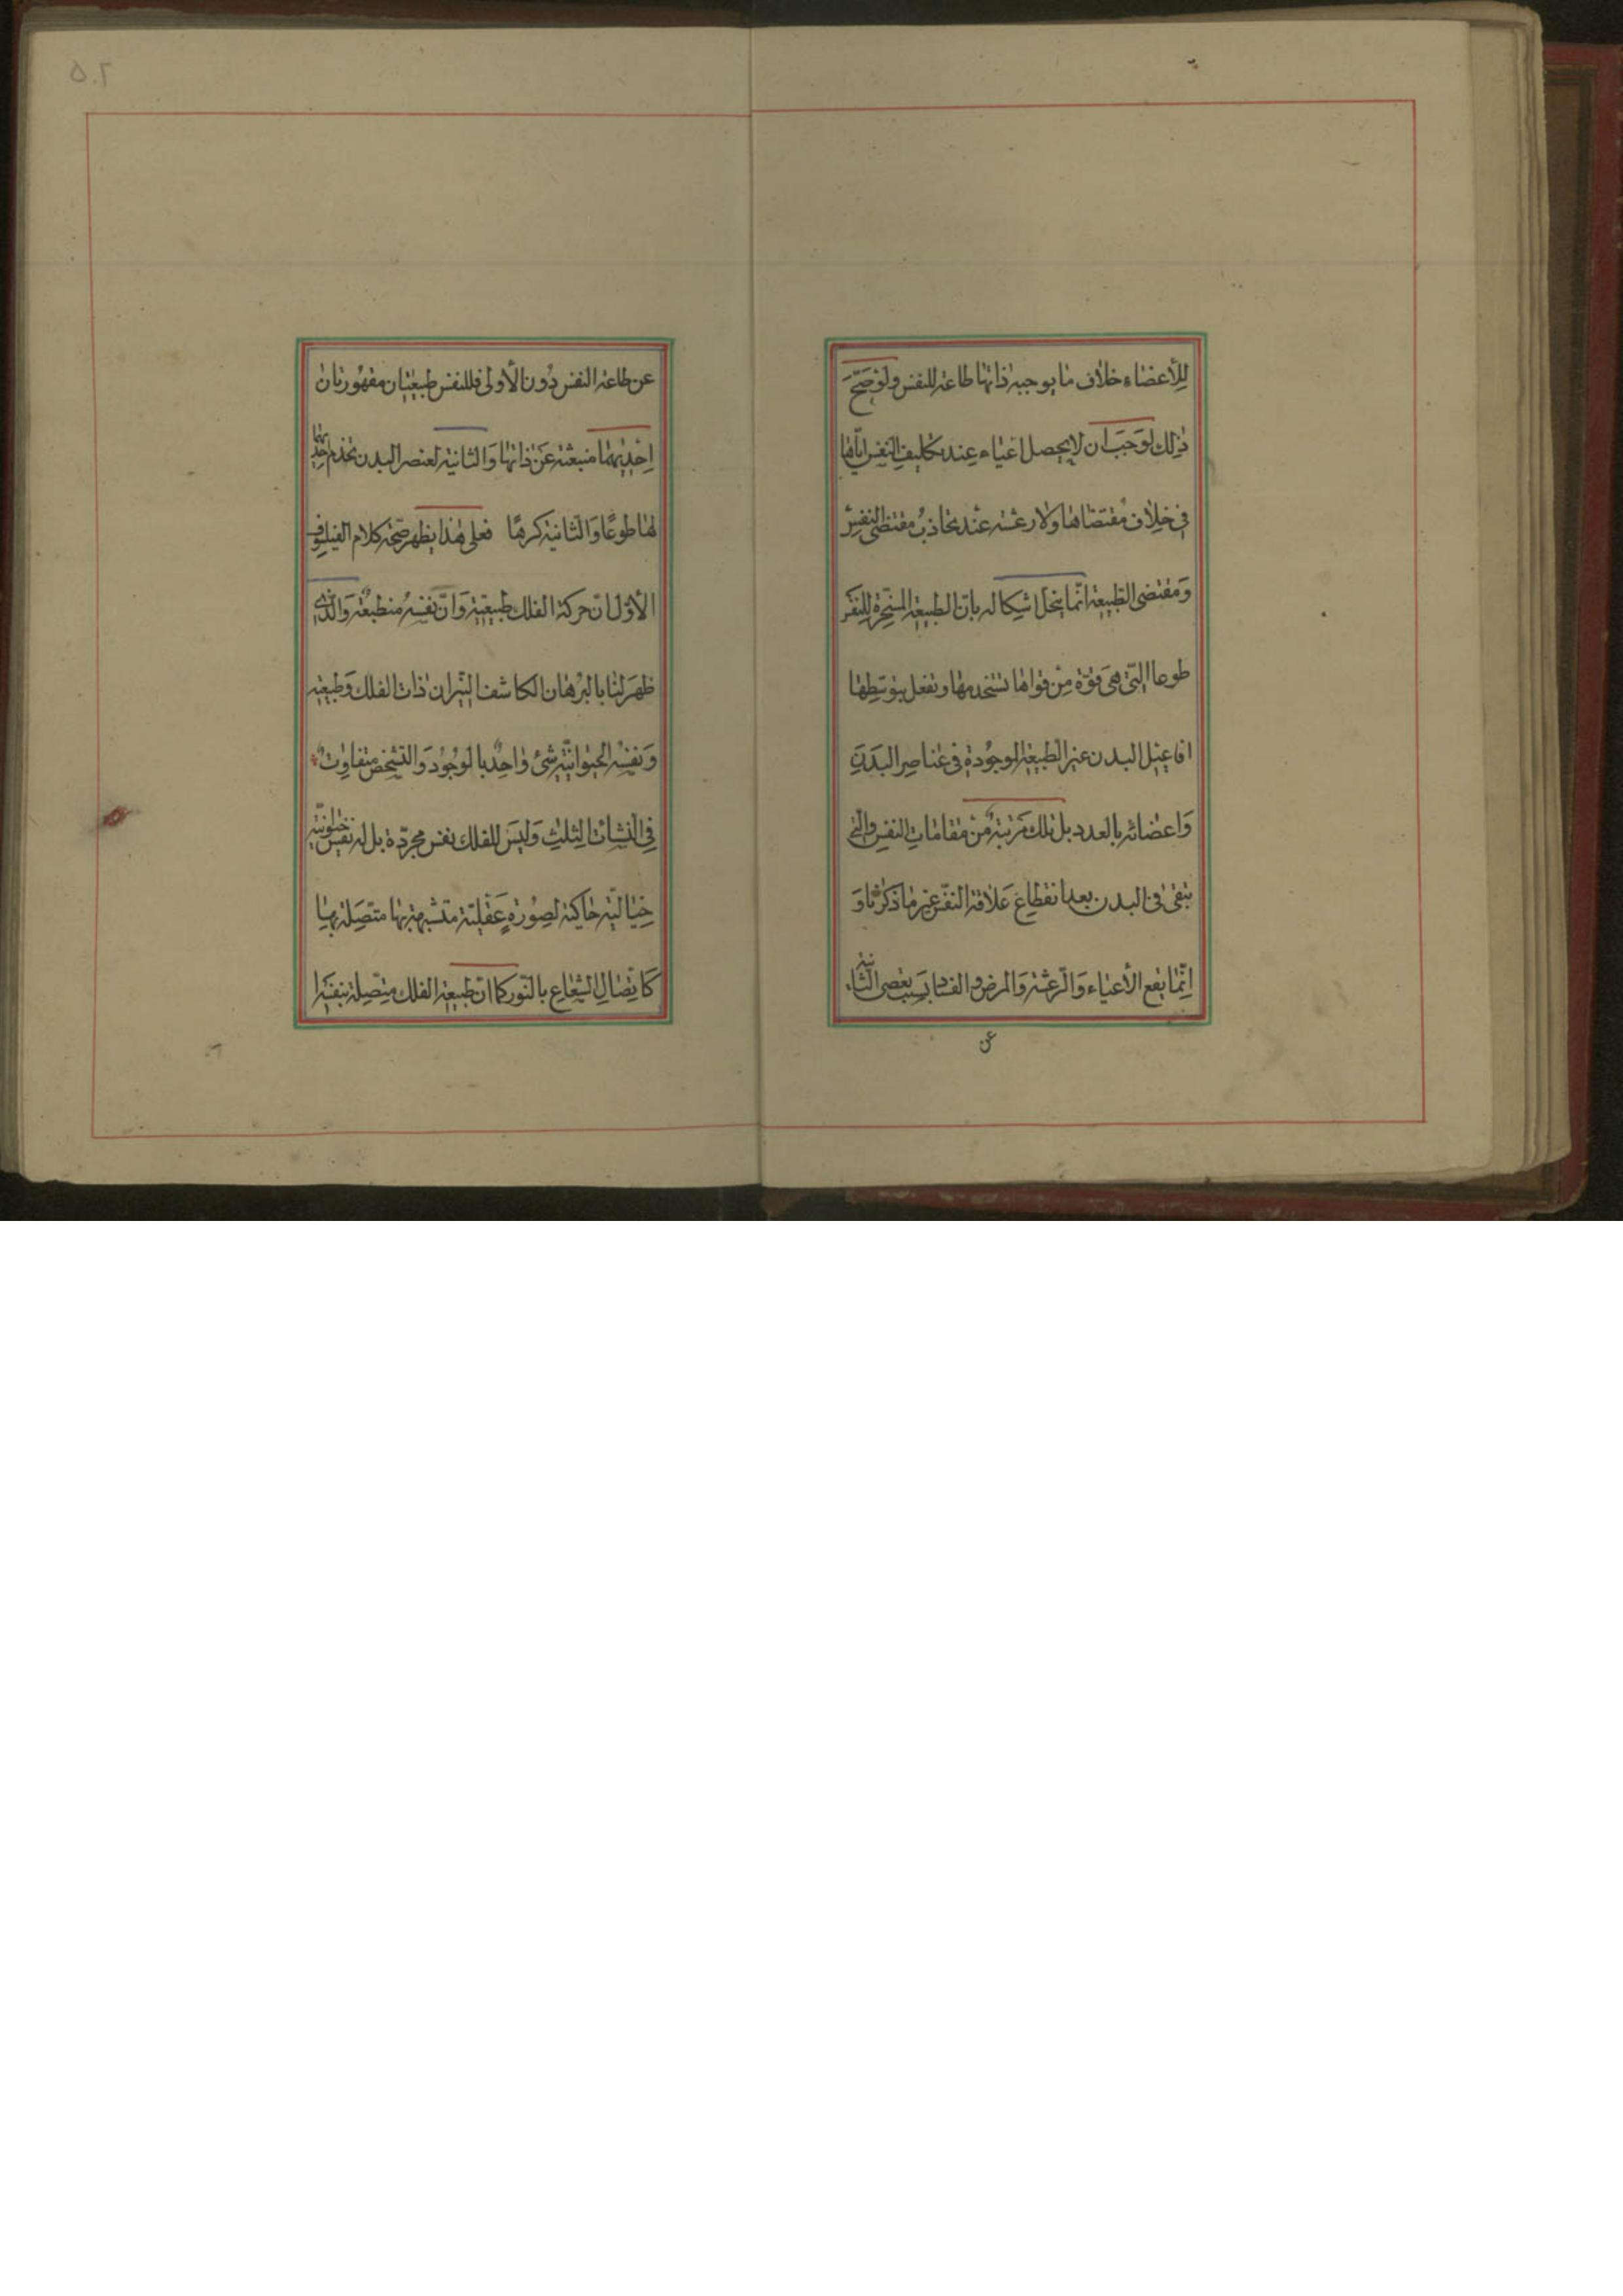 للأعضاء خلاف ما يوجبه ذاتها طاعة للنفس ولو صحّ
ذلك لوجب ان لا يحصل اعياء عند تكليف النفس ايّاها
فى خلاف مقتضاها ولا رعشة عند تجاذب مقتضى النفس
ومقتضى الطبيعة انّما ينحل اشكاله بانّ الطبيعة المسخّرة للنفس
طوعا الّتى هى قوّة من قواها تستخدمها وتفعل بتوسّطها
افاعيل البدن غير الطبيعة الموجودة فى عناصر البدن
واعضائه بالعدد بل تلك مرتبة من مقامات النفس والّتى
تبقى فى البدن بعد انقطاع علاقة النفس غير ما ذكرنا و
انّما يقع الأعياء والرّعشة والمرض و الفساد بسبب تعصى الثّانية
عن
عن طاعة النفس دون الأولى فللنفس طبيعتان مقهورتان
احديهما منبعثة عن ذاتها والثانية لعنصر البدن تخدم احديهما
لها طوعًا والثّانية كرهًا فعلى هذا يظهر صحّة كلام الفيلسوف
الأوّل انّ حركة الفلك طبيعيّة وانّ نفسه منطبعة والّذى
ظهر لنا بالبرهان الكاشف النيّر ان ذات الفلك وطبيعته
ونفسه الحيوانيّة شئ واحد بالوجود والتشخّص متفاوت
فى النشآت الثلث وليس للفلك نفس مجرّدة بل له نفس حيوانيّة
خياليّة حاكية لصورة عقليّة متشبهة بها متّصلة بها
كاتّصال الشعاع بالنّور كما انّ طبيعة الفلك متّصلة بنفسه